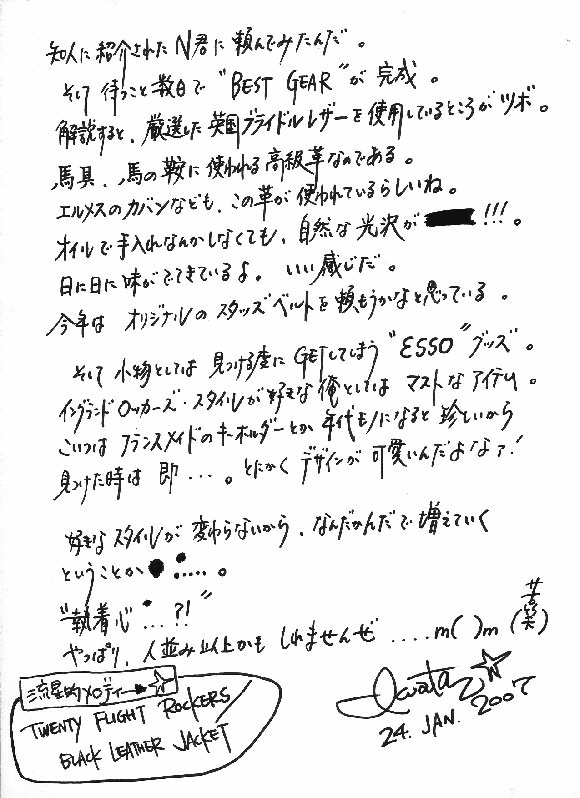 知人に紹介されたN君に頼んでみたんだ。
そして待つこと数日で"BEST GEAR"が完成。
解説すると、厳選した英国ブライドルレザーを使用しているところがツボ。
馬具、馬の鞍に使われる高級革なのである。
エルメスのカバンなども、この革が使われているらしいね。
オイルで手入れなんかしなくても、自然な光沢が!!!。
日に日に味がでてきているよ。いい感じだ。
今年はオリジナルのスタッズベルトを頼もうかなと思っている。
そして小物としては見つける度にGETしてしまう"ESSO"グッズ。
イングランドロッカーズ・スタイルが好きな俺としてはマストなアイテム。
こいつはフランスメイドのキーホルダーとか年代モノになると珍しいから
見つけた時は即・・・。とにかくデザインが可愛いんだよなァ!
好きなスタイルが変わらないから、なんだかんだで増えていく
ということか・・・・・。
"執着心"・・・?!
やっぱり、人並み以上かもしれませんぜ....m( )m(苦笑)
流星的メロディー
TWENTY FLIGHT ROCKERS/
BLACK LEATHER JACKET
24. JAN. 2007